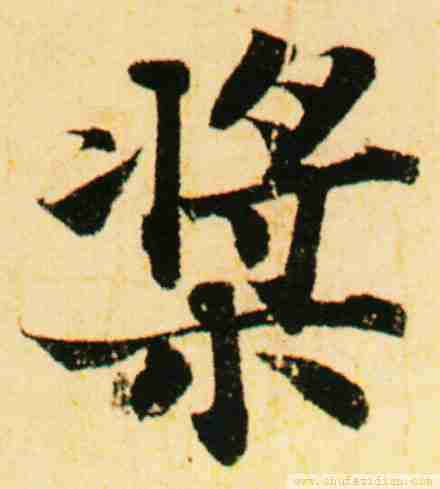 桨
www.shufazidian.com